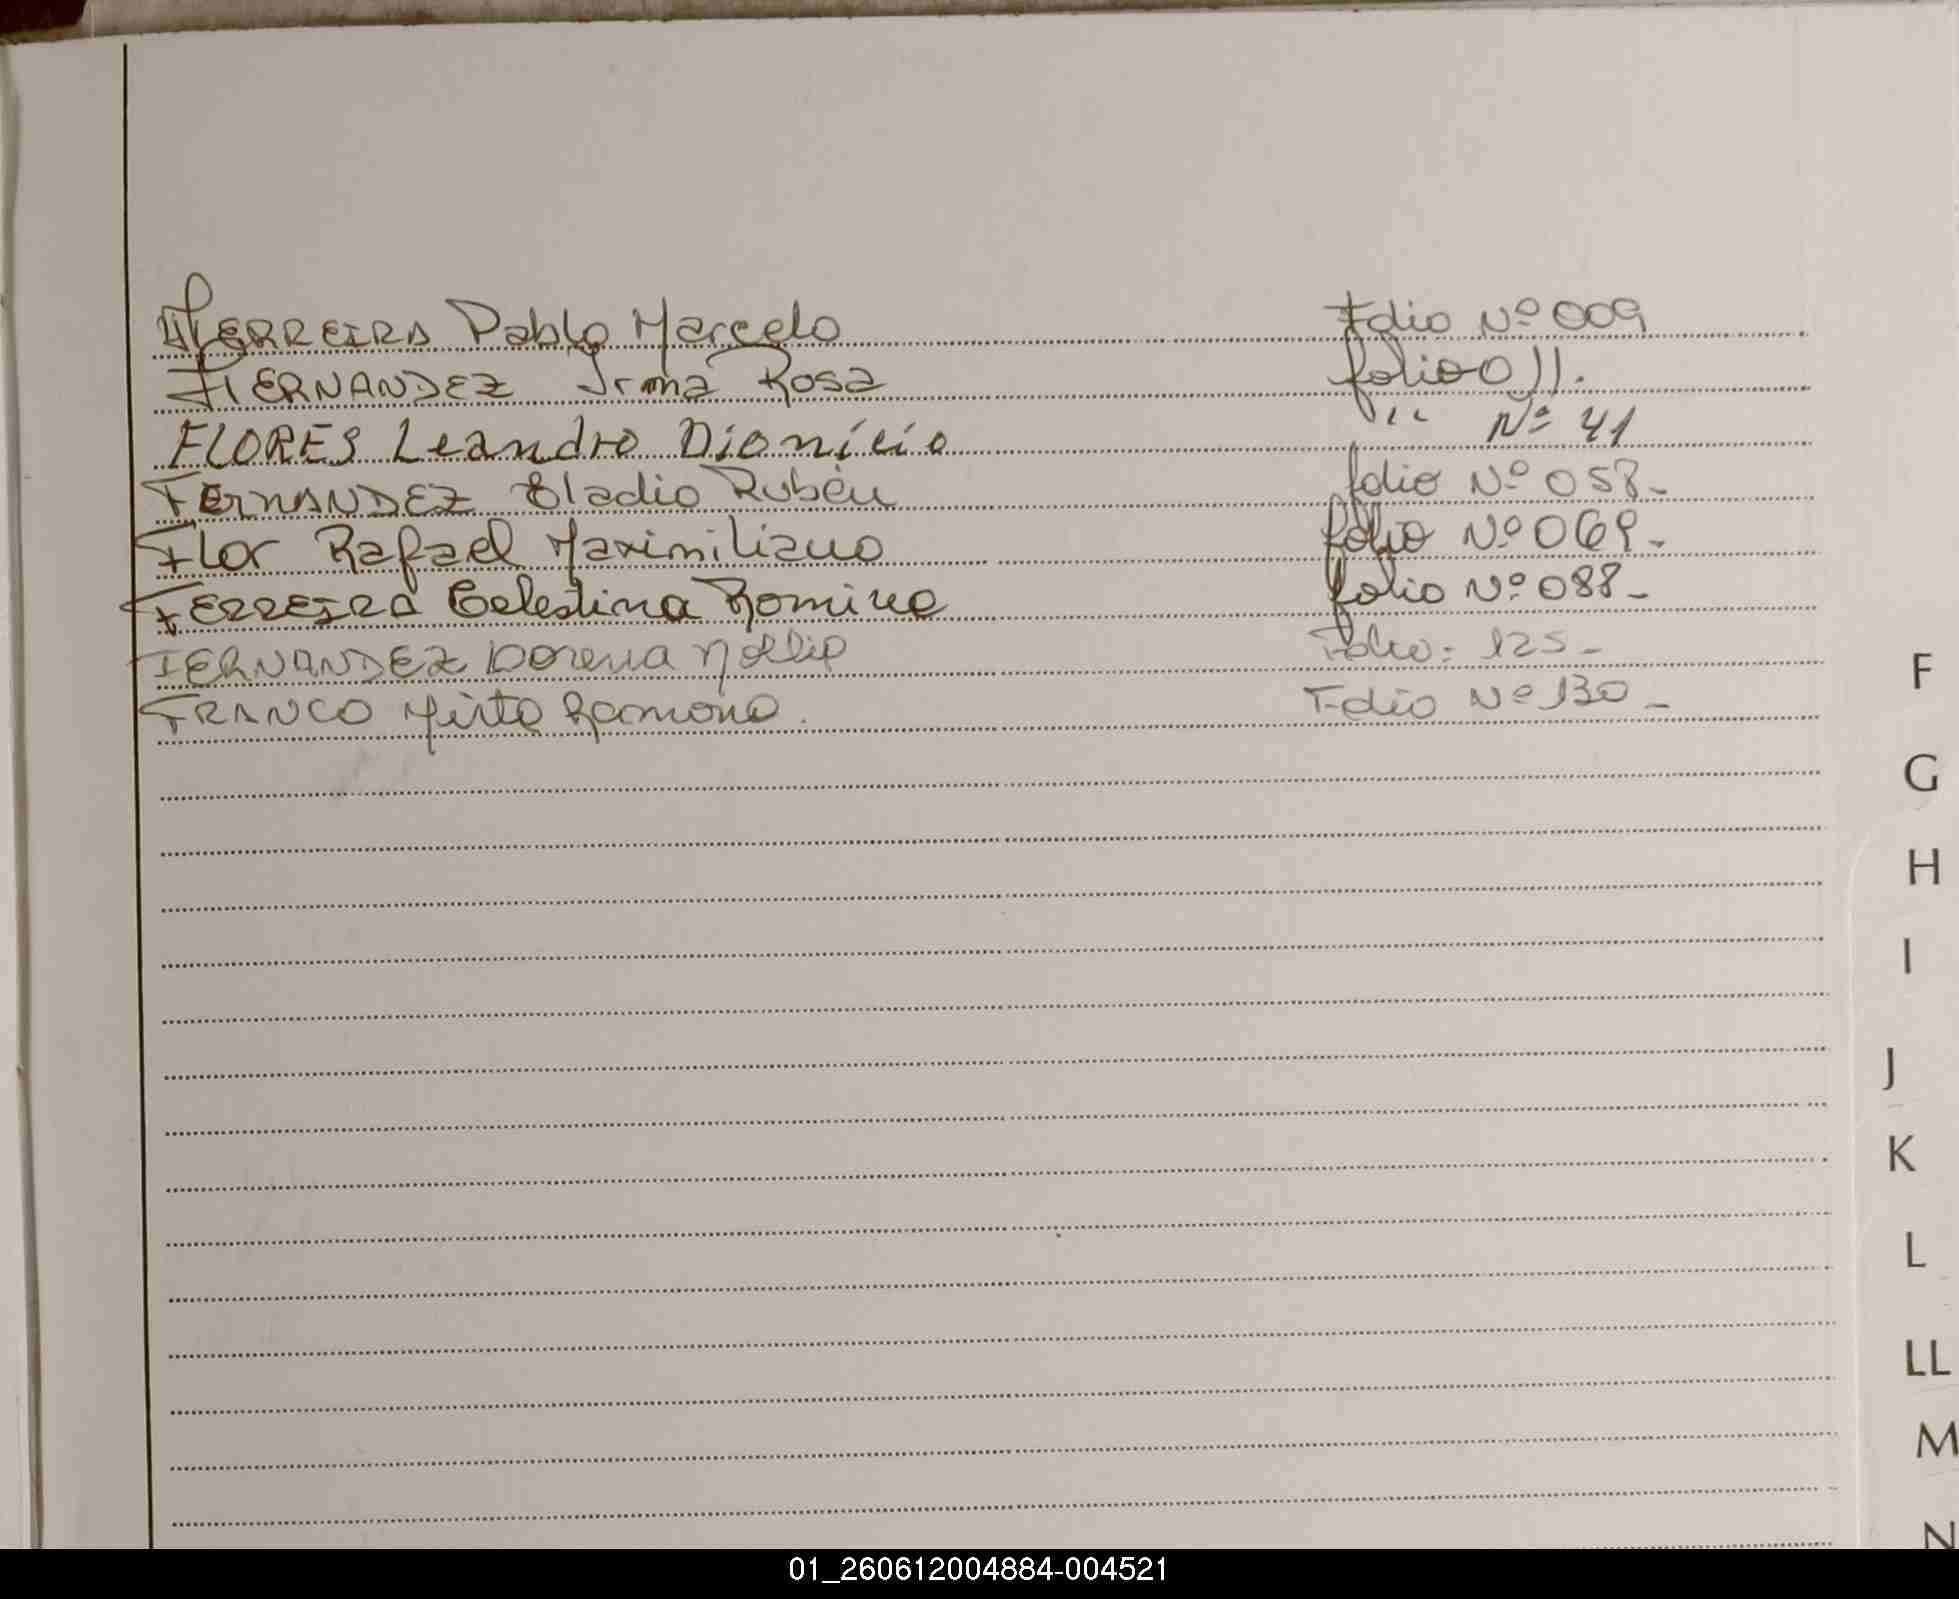 FERREIRA Pablo Marcelo Folio Nº 009
FIERNANDEZ Irma Rosa folio 011.
FLORES Leandro Dionicio " Nº 41
FERNANDEZ Eladio Rubén folio Nº 058-
Flor Rafael Maximiliano folio Nº 069-
FERREIRA Celestina Romina folio Nº 088-
FERNANDEZ Lorena Folio: 125-
FRANCO Mirta Ramona. Folio Nº 130-
F
G
H
I
J
K
L
LL
M
N
01_260612004884-004521